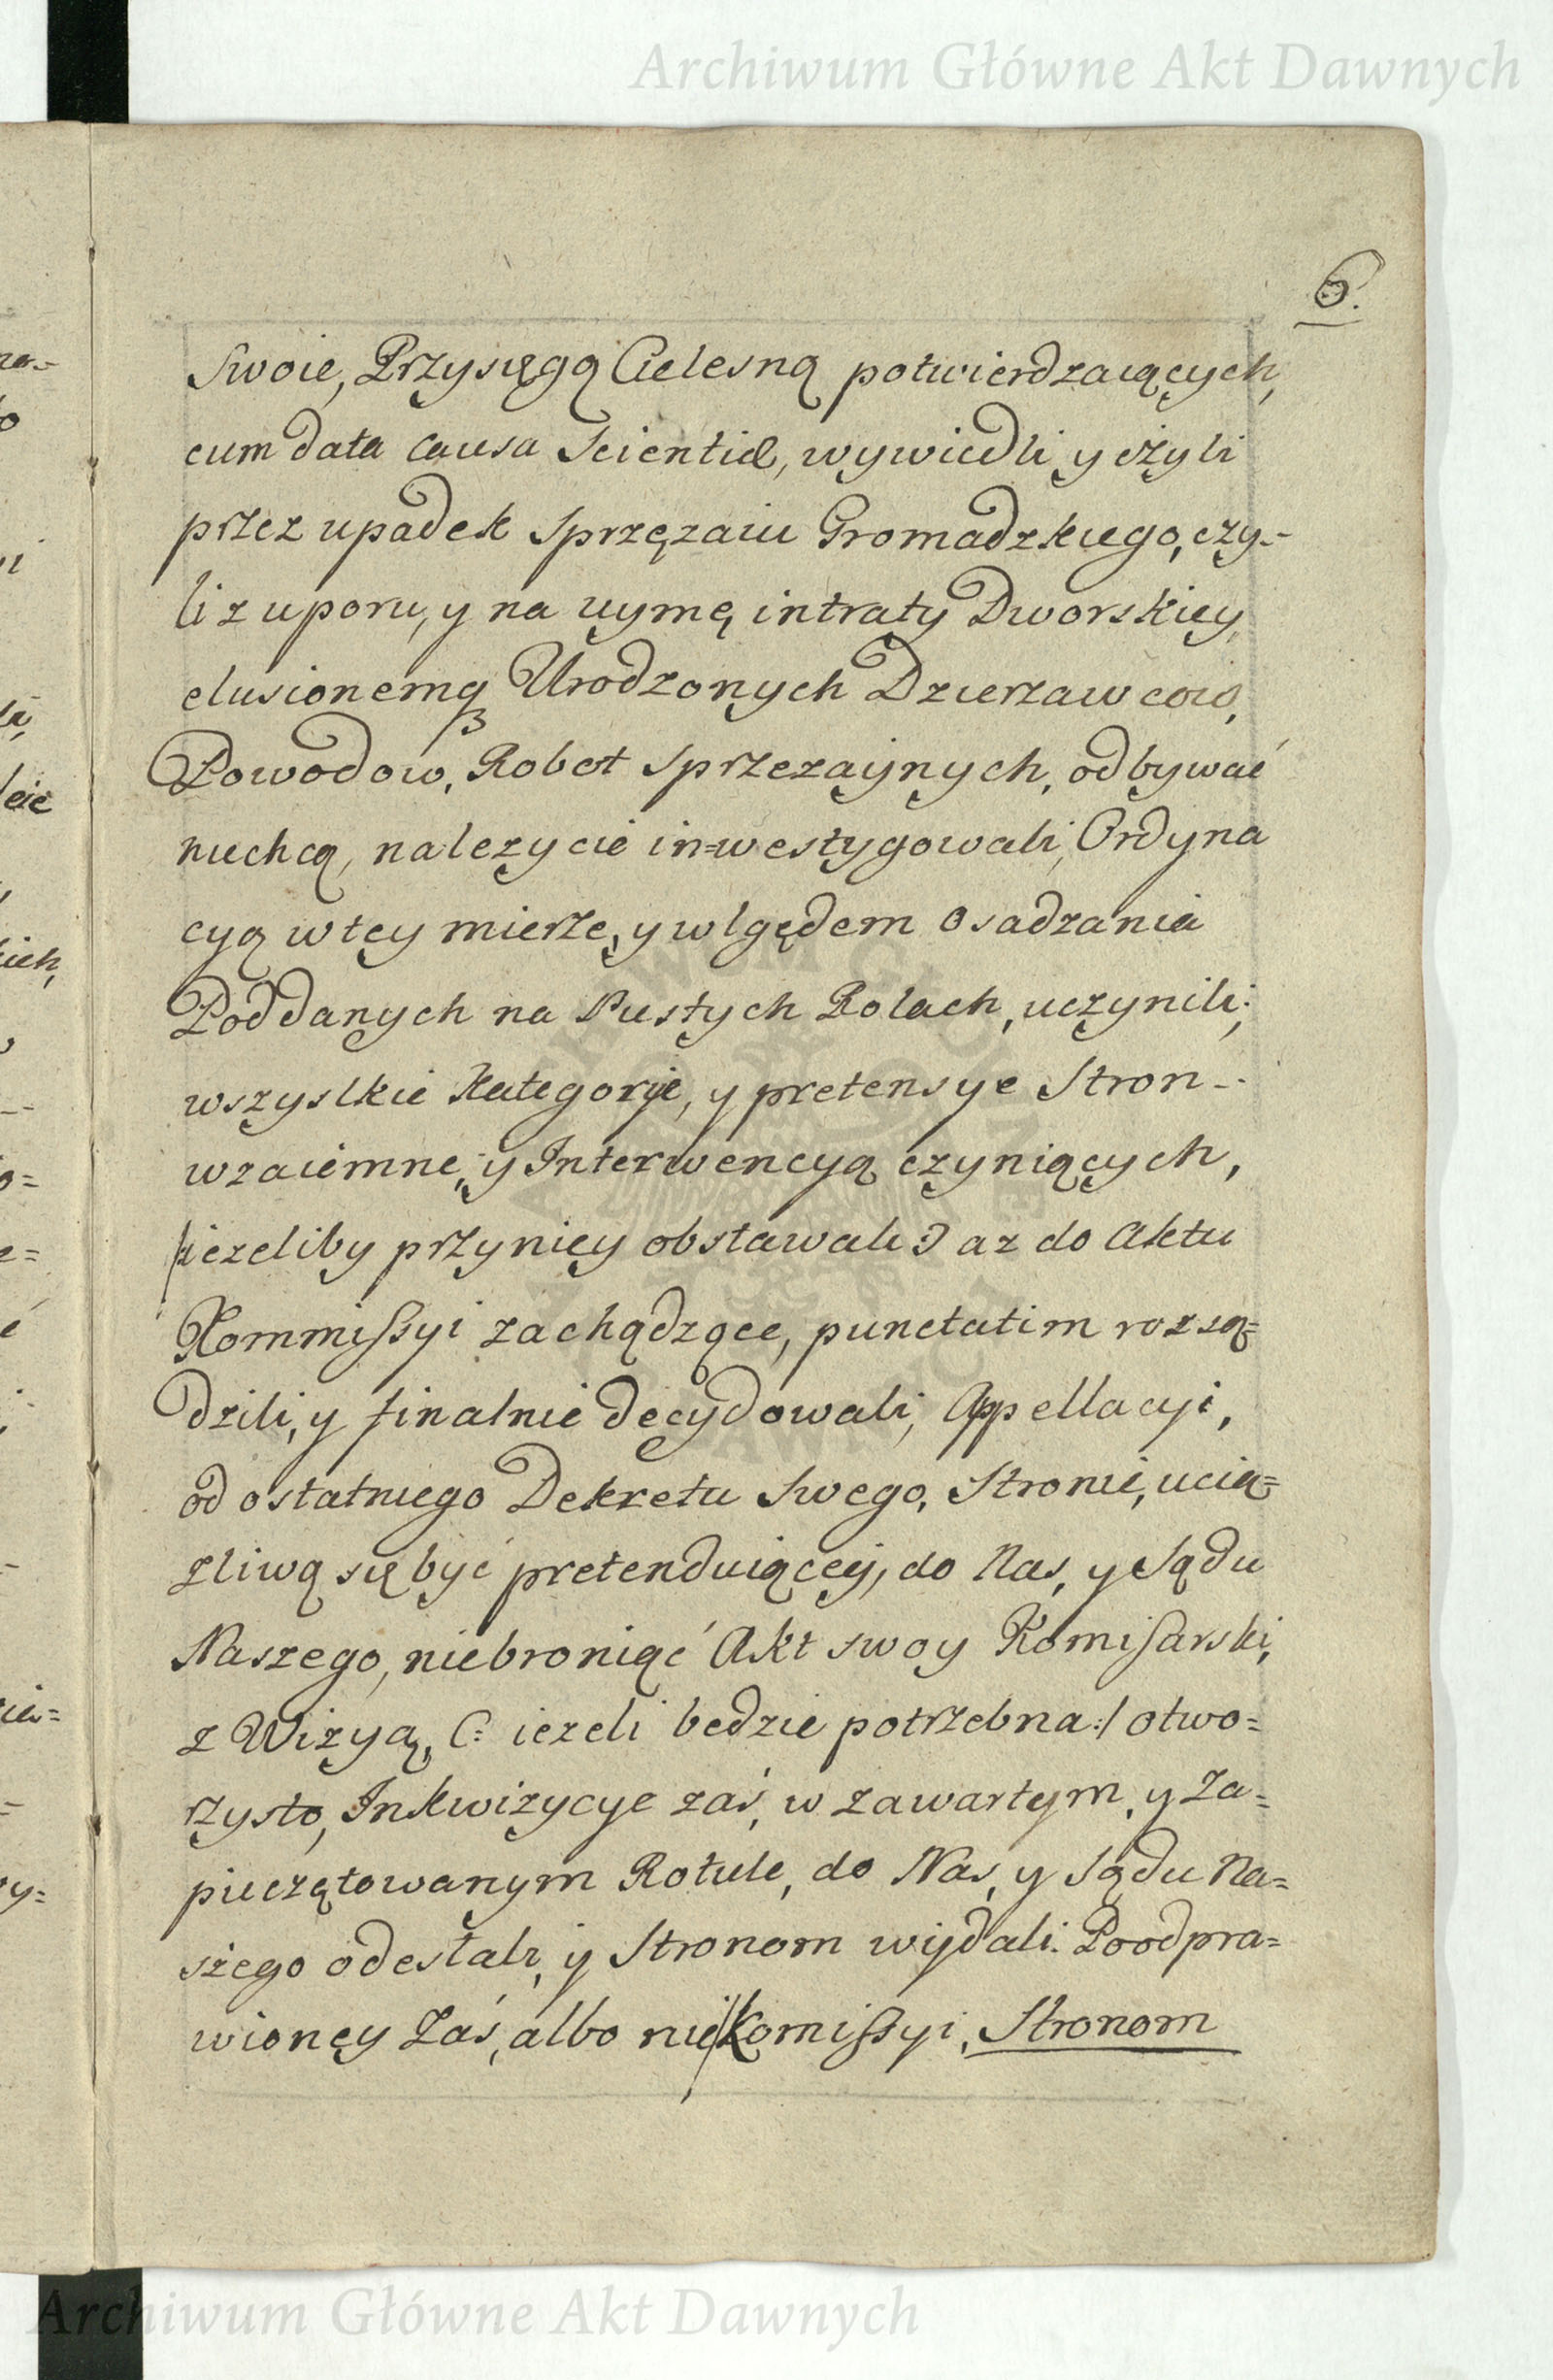 Archiwum Główne Akt Dawnych
6.
Swoie, Przysięgą Cielesną potwierdzaiących,
cum data causa Scientiæ, wywiedli y czyli
przez upadek Sprzęzaiu Gromadzkiego, czy-
li z uporu, y na uymę intraty Dworskiey,
elusionemq3 Urodzonych Dzierzawcow,
Powodow, Robot Sprzezaynych, odbywać
niechcą, nalezycie in=westygowali, Ordyna
cyą w tey mierze, y wlgędem Osadzania
Poddanych na Pustych Rolach, uczynili;
wszystkie Kategorye, y pretensye Stron-
wzaiemne, y Interwencyą czyniących,
/ iezeliby przyniey obstawali) az do Aktu
Kommissyi zachądzące, punctatim rozsą=
dzili, y finalnie decydowali, Appellacyi,
od ostatniego Dekretu Swego, Stronie, ucią=
zliwą się być pretenduiącey, do Nas, y Sądu
Naszego, niebroniąc Akt swoy Komisarski,
z Wizyą, (: iezeli bedzie potrzebna:/ otwo=
rzysto, Inkwizycye zaś, w zawartym, y Za=
pieczętowanym Rotule, do Nas, y Sądu Na=
szego odesłali, y Stronom wydali. Po odpra=
wioney Zaś, albo nie Komissyi, Stronom
Archiwum Główne Akt Dawnych